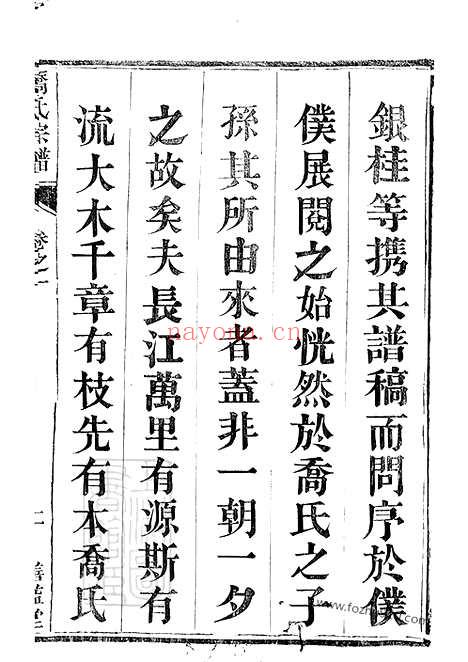 銀桂等携其譜稿而問序於僕
僕展閱之始恍然於喬氏之子
孫其所由來者蓋非一朝一夕
之故矣夫長江萬里有源斯有
流大木千章有枝先有本喬氏
喬氏宗譜
卷之一
nayona.cn